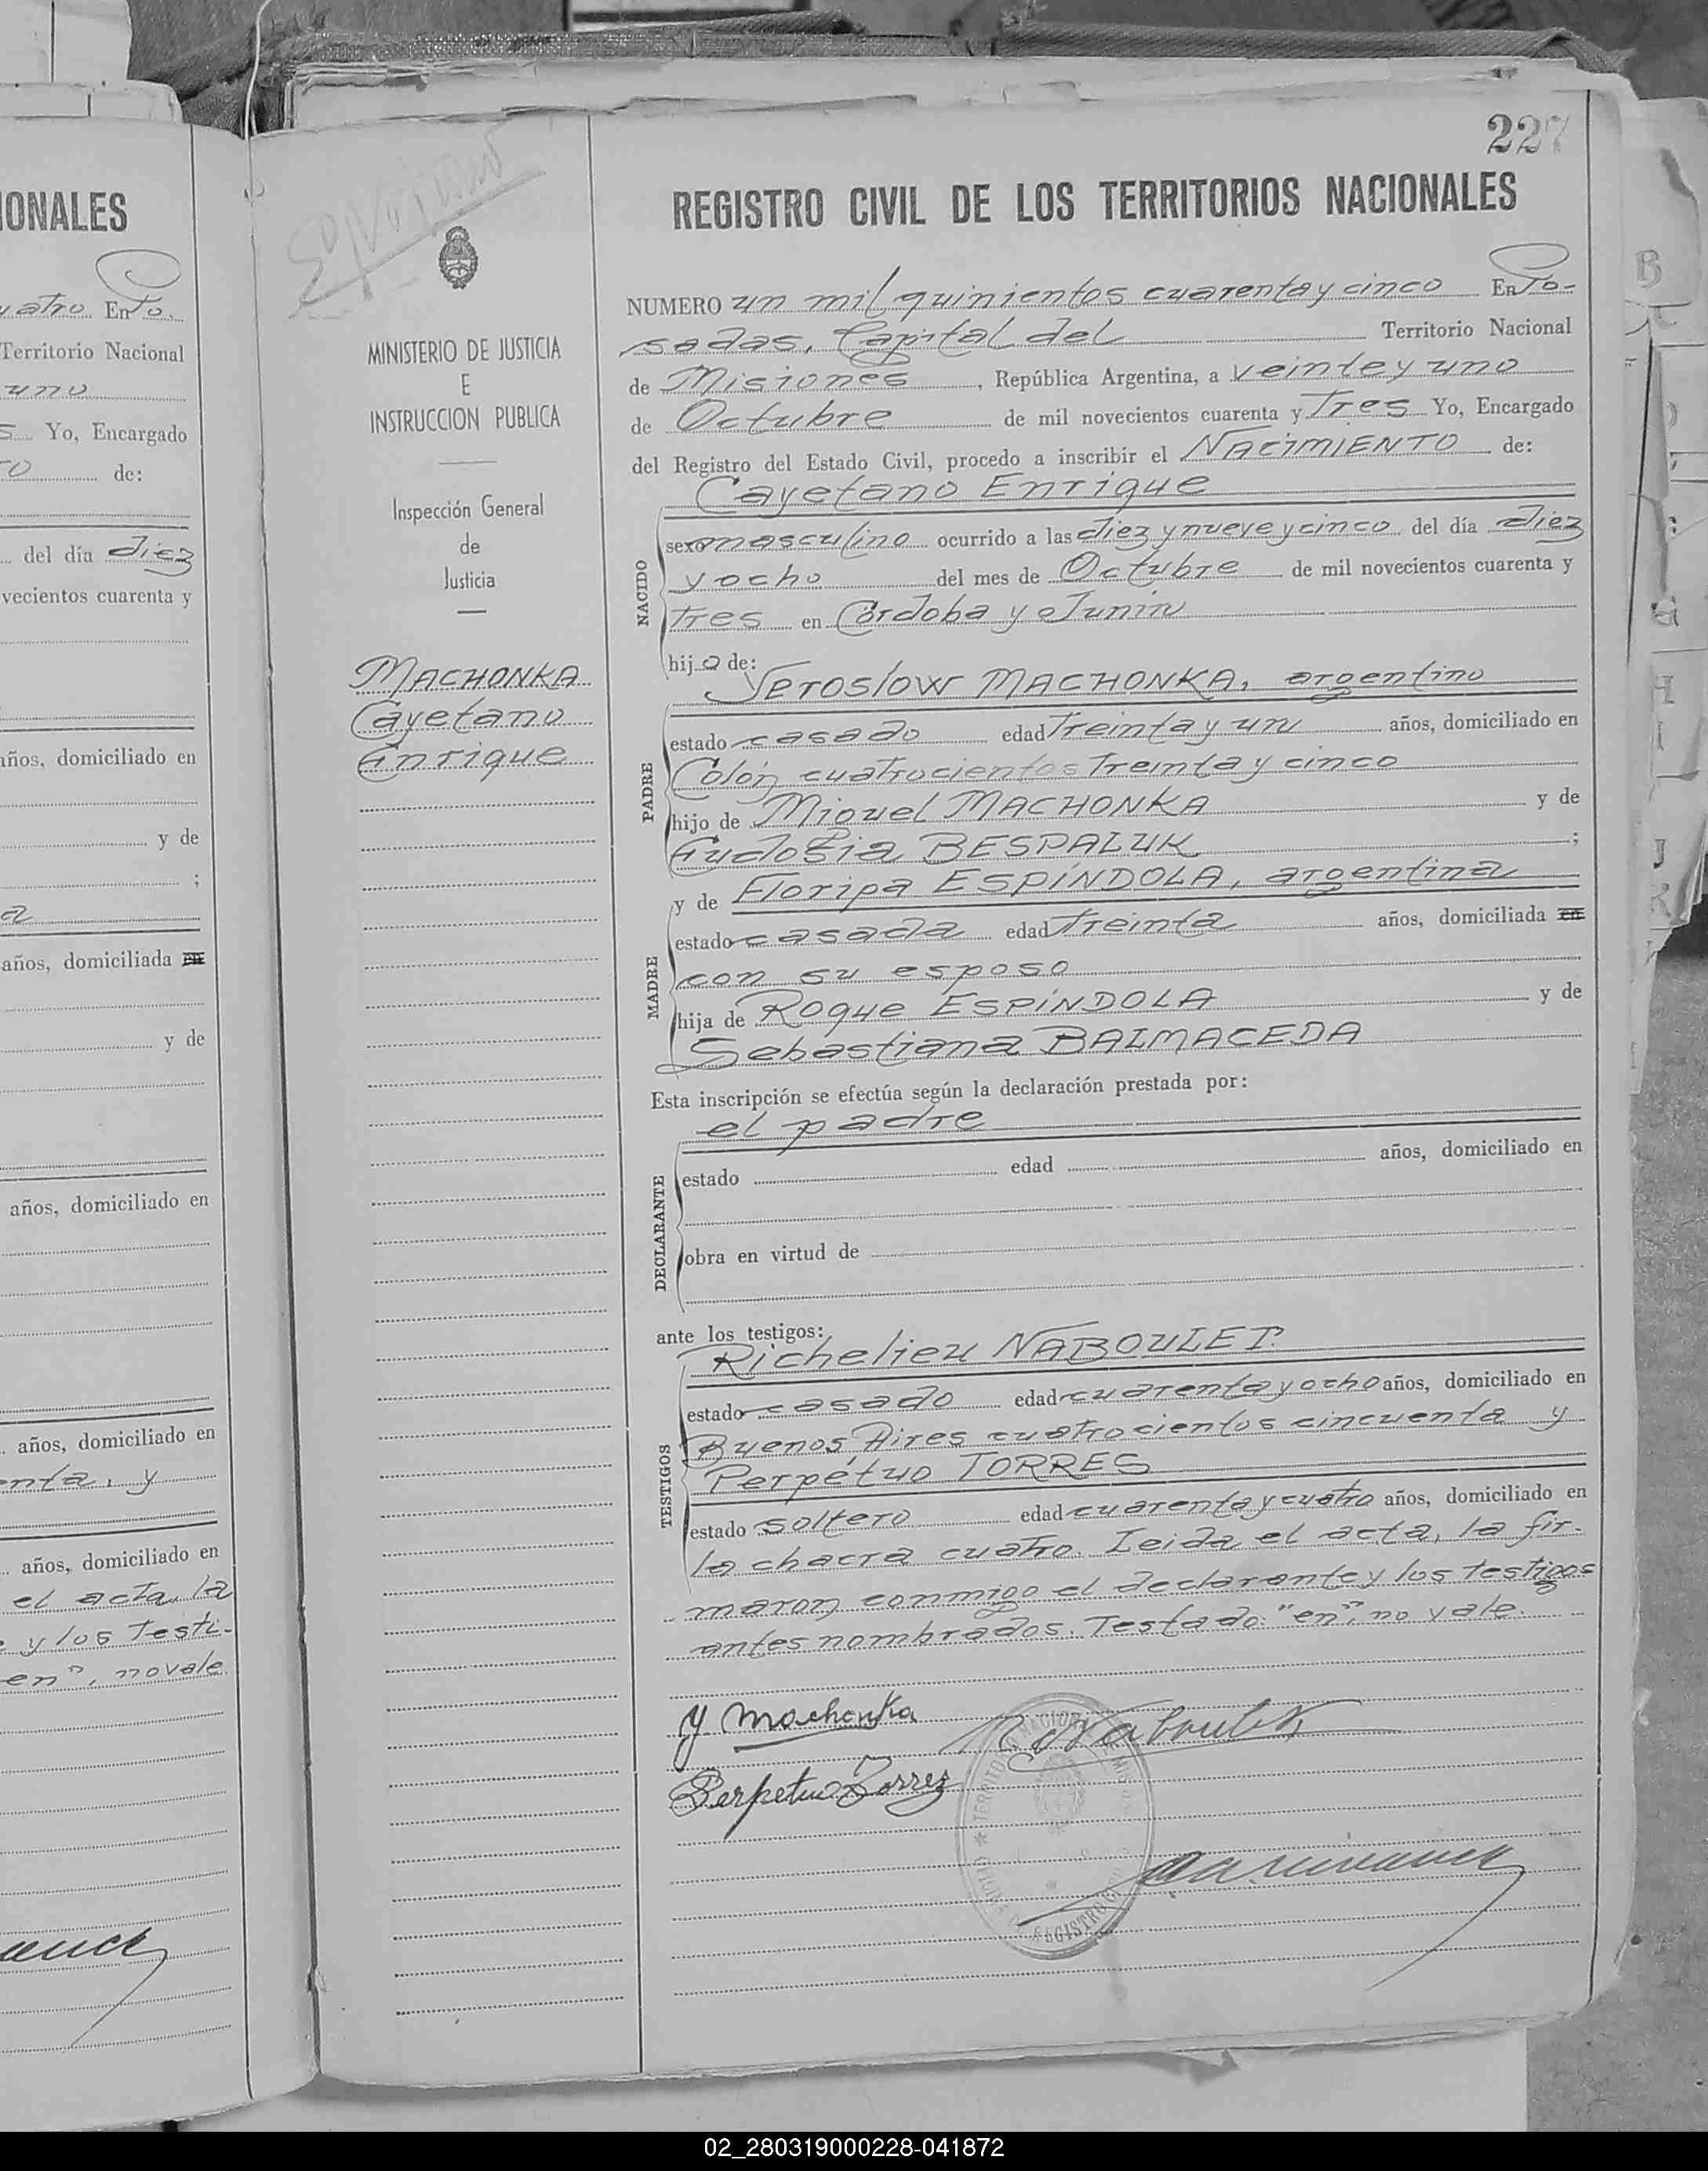 IONALES
uatro En Po.
Territorio Nacional
uno
s Yo, Encargado
TO de:
del día diez
vecientos cuarenta y
años, domiciliado en
y de
;
a
años, domiciliada en
y de
años, domiciliado en
años, domiciliado en
enta, y
años, domiciliado en
el acta, la
e y los Testi-
en", no vale
MINISTERIO DE JUSTICIA
E
INSTRUCCION PUBLICA
Inspección General
de
Justicia
MACHONKA
Cayetano
Enrique
227
REGISTRO CIVIL DE LOS TERRITORIOS NACIONALES
NUMERO un mil quinientos cuarenta y cinco En Po-
sadas, Capital del Territorio Nacional
de Misiones, República Argentina, a veinte y uno
de Octubre de mil novecientos cuarenta y Tres Yo, Encargado
del Registro del Estado Civil, procedo a inscribir el NACIMIENTO de:
Cayetano Enrique
NACIDO
sexo masculino ocurrido a las diez y nueve y cinco del día diez
y ocho del mes de Octubre de mil novecientos cuarenta y
Tres en Córdoba y Junín
hijo de:
Yeroslow MACHONKA, argentino
PADRE
estado casado edad Treinta y un años, domiciliado en
Colón cuatrocientos Treinta y cinco
hijo de Miguel MACHONKA y de
Eudosia BESPALUK ;
y de Floripa ESPÍNDOLA, argentina
MADRE
estado casada edad Treinta años, domiciliada en
con su esposo
hija de Roque ESPÍNDOLA y de
Sebastiana BALMACEDA
Esta inscripción se efectúa según la declaración prestada por:
el padre
DECLARANTE
estado edad años, domiciliado en
obra en virtud de
ante los testigos:
Richelieu NABOULET.
TESTIGOS
estado casado edad cuarenta y ocho años, domiciliado en
Buenos Aires cuatrocientos cincuenta y
Perpétuo TORRES
estado soltero edad cuarenta y cuatro años, domiciliado en
la chacra cuatro. Leida el acta, la fir-
maron conmigo el declarante y los testigos
antes nombrados. Testado: "en", no vale.
Y Machonka
R. Naboulet
Perpetuo Torres
REGISTRO
02_280319000228-041872